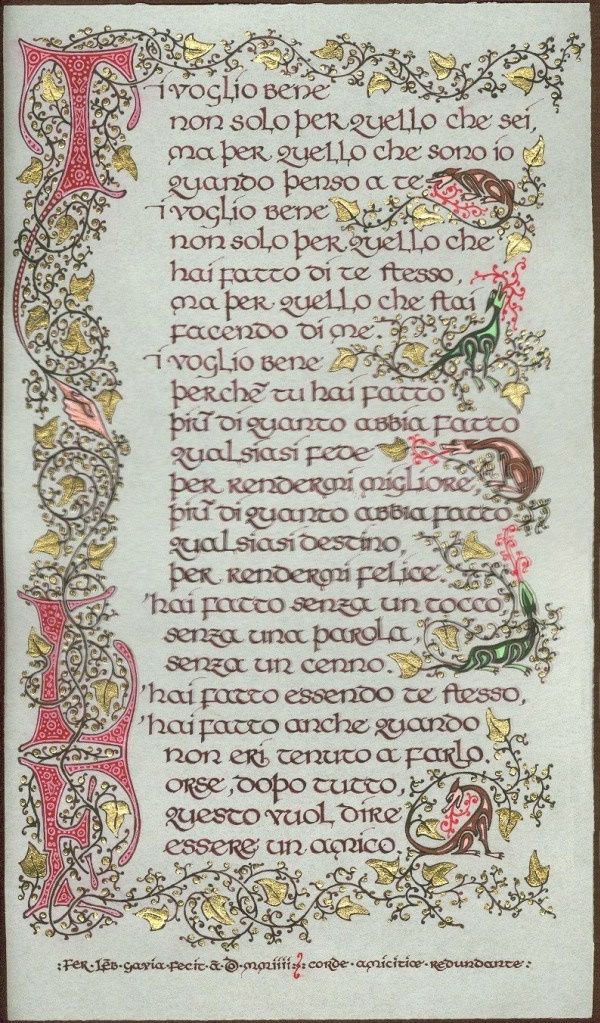 Ti voglio bene
non solo per quello che sei,
ma per quello che sono io
quando penso a te
i voglio bene
non solo per quello che
hai fatto di te stesso,
ma per quello che stai
facendo di me
i voglio bene
perchè tu hai fatto
più di quanto abbia fatto
qualsiasi fede
per rendermi migliore,
più di quanto abbia fatto
qualsiasi destino,
per rendermi felice.
L'hai fatto senza un tocco,
senza una parola,
senza un cenno.
'hai fatto essendo te stesso,
'hai fatto anche quando
non eri tenuto a farlo.
Forse, dopo tutto,
questo vuol dire
essere un amico.
:Fer·Leb·Gavia·fecit·A·D·MMIIII: corde·amicitiæ·redundante: